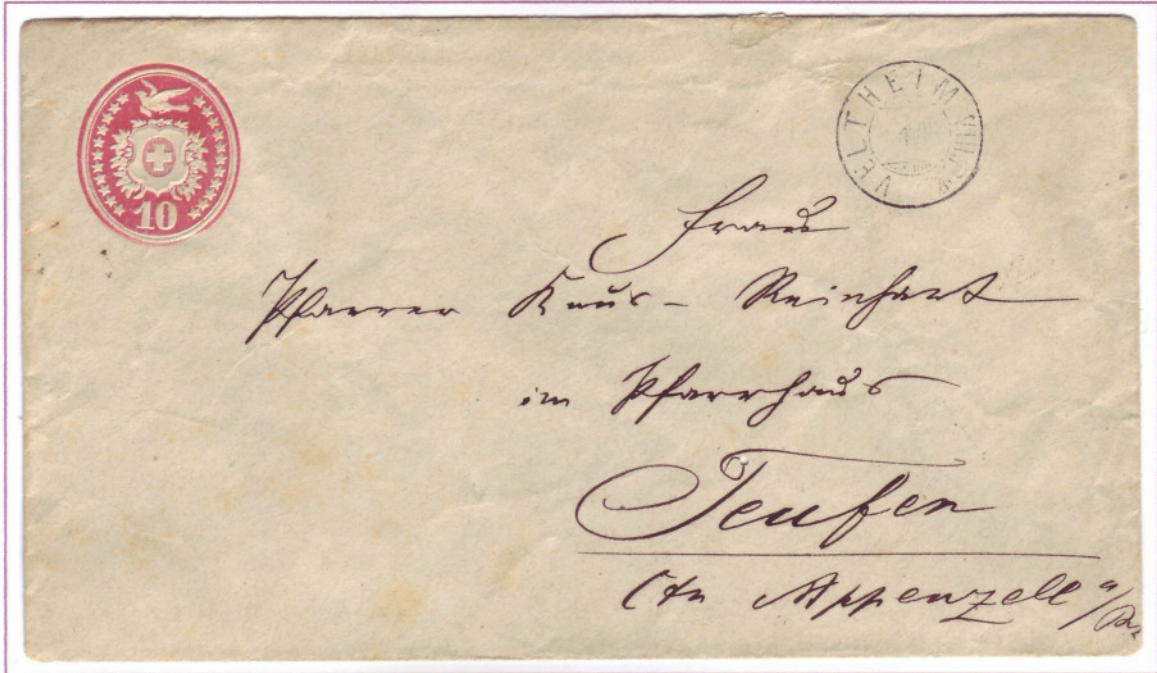 10
VELTHEIM
Frau
Pfarrer Knus - Reinhart
im Pfarrhaus
Teufen
Ctn Appenzell a/Rh